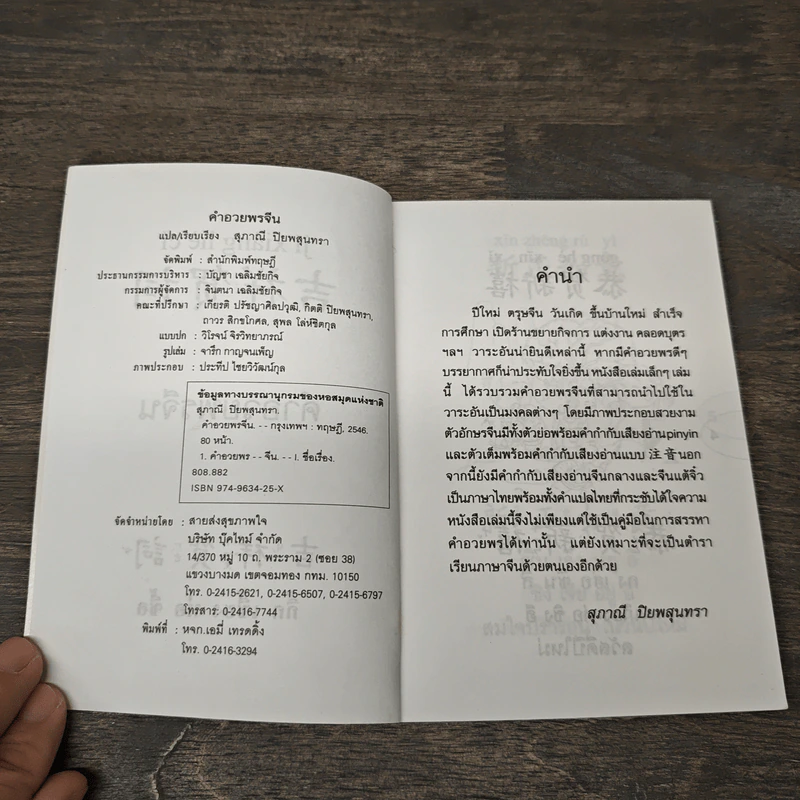 คำอวยพรจีน
แปล/เรียบเรียง สุภาณี ปิยพสุนทรา
จัดพิมพ์ : สำนักพิมพ์ทฤษฎี
ประธานกรรมการบริหาร : บัญชา เฉลิมชัยกิจ
กรรมการผู้จัดการ : จินตนา เฉลิมชัยกิจ
คณะที่ปรึกษา : เกียรติ ปรัชญาศิลปวุฒิ, กิตติ ปิยพสุนทรา,
ถาวร สิกขโกศล, สุพล โล่ห์ชิตกุล
แบบปก : วิโรจน์ จิรวิทยาภรณ์
รูปเล่ม : จารึก กาญจนเพ็ญ
ภาพประกอบ : ประทีป ไชยวิวัฒน์กุล
ข้อมูลทางบรรณานุกรมของหอสมุดแห่งชาติ
สุภาณี ปิยพสุนทรา.
คำอวยพรจีน. -- กรุงเทพฯ : ทฤษฎี, 2546.
80 หน้า.
1. คำอวยพร -- จีน. -- I. ชื่อเรื่อง.
808.882
ISBN 974-9634-25-X
จัดจำหน่ายโดย : สายส่งสุขภาพใจ
บริษัท บุ๊คไทม์ จำกัด
14/370 หมู่ 10 ถ. พระราม 2 (ซอย 38)
แขวงบางมด เขตจอมทอง กทม. 10150
โทร. 0-2415-2621, 0-2415-6507, 0-2415-6797
โทรสาร: 0-2416-7744
พิมพ์ที่ : หจก.เอมี่ เทรดดิ้ง
โทร. 0-2416-3294
คำนำ
ปีใหม่ ตรุษจีน วันเกิด ขึ้นบ้านใหม่ สำเร็จ
การศึกษา เปิดร้านขยายกิจการ แต่งงาน คลอดบุตร
ฯลฯ วาระอันน่ายินดีเหล่านี้ หากมีคำอวยพรดีๆ
บรรยากาศก็น่าประทับใจยิ่งขึ้น หนังสือเล่มเล็กๆ เล่ม
นี้ ได้รวบรวมคำอวยพรจีนที่สามารถนำไปใช้ใน
วาระอันเป็นมงคลต่างๆ โดยมีภาพประกอบสวยงาม
ตัวอักษรจีนมีทั้งตัวย่อพร้อมคำกำกับเสียงอ่านpinyin
และตัวเต็มพร้อมคำกำกับเสียงอ่านแบบ 注音นอก
จากนี้ยังมีคำกำกับเสียงอ่านจีนกลางและจีนแต้จิ๋ว
เป็นภาษาไทยพร้อมทั้งคำแปลไทยที่กระชับได้ใจความ
หนังสือเล่มนี้จึงไม่เพียงแต่ใช้เป็นคู่มือในการสรรหา
คำอวยพรได้เท่านั้น แต่ยังเหมาะที่จะเป็นตำรา
เรียนภาษาจีนด้วยตนเองอีกด้วย
สุภาณี ปิยพสุนทรา